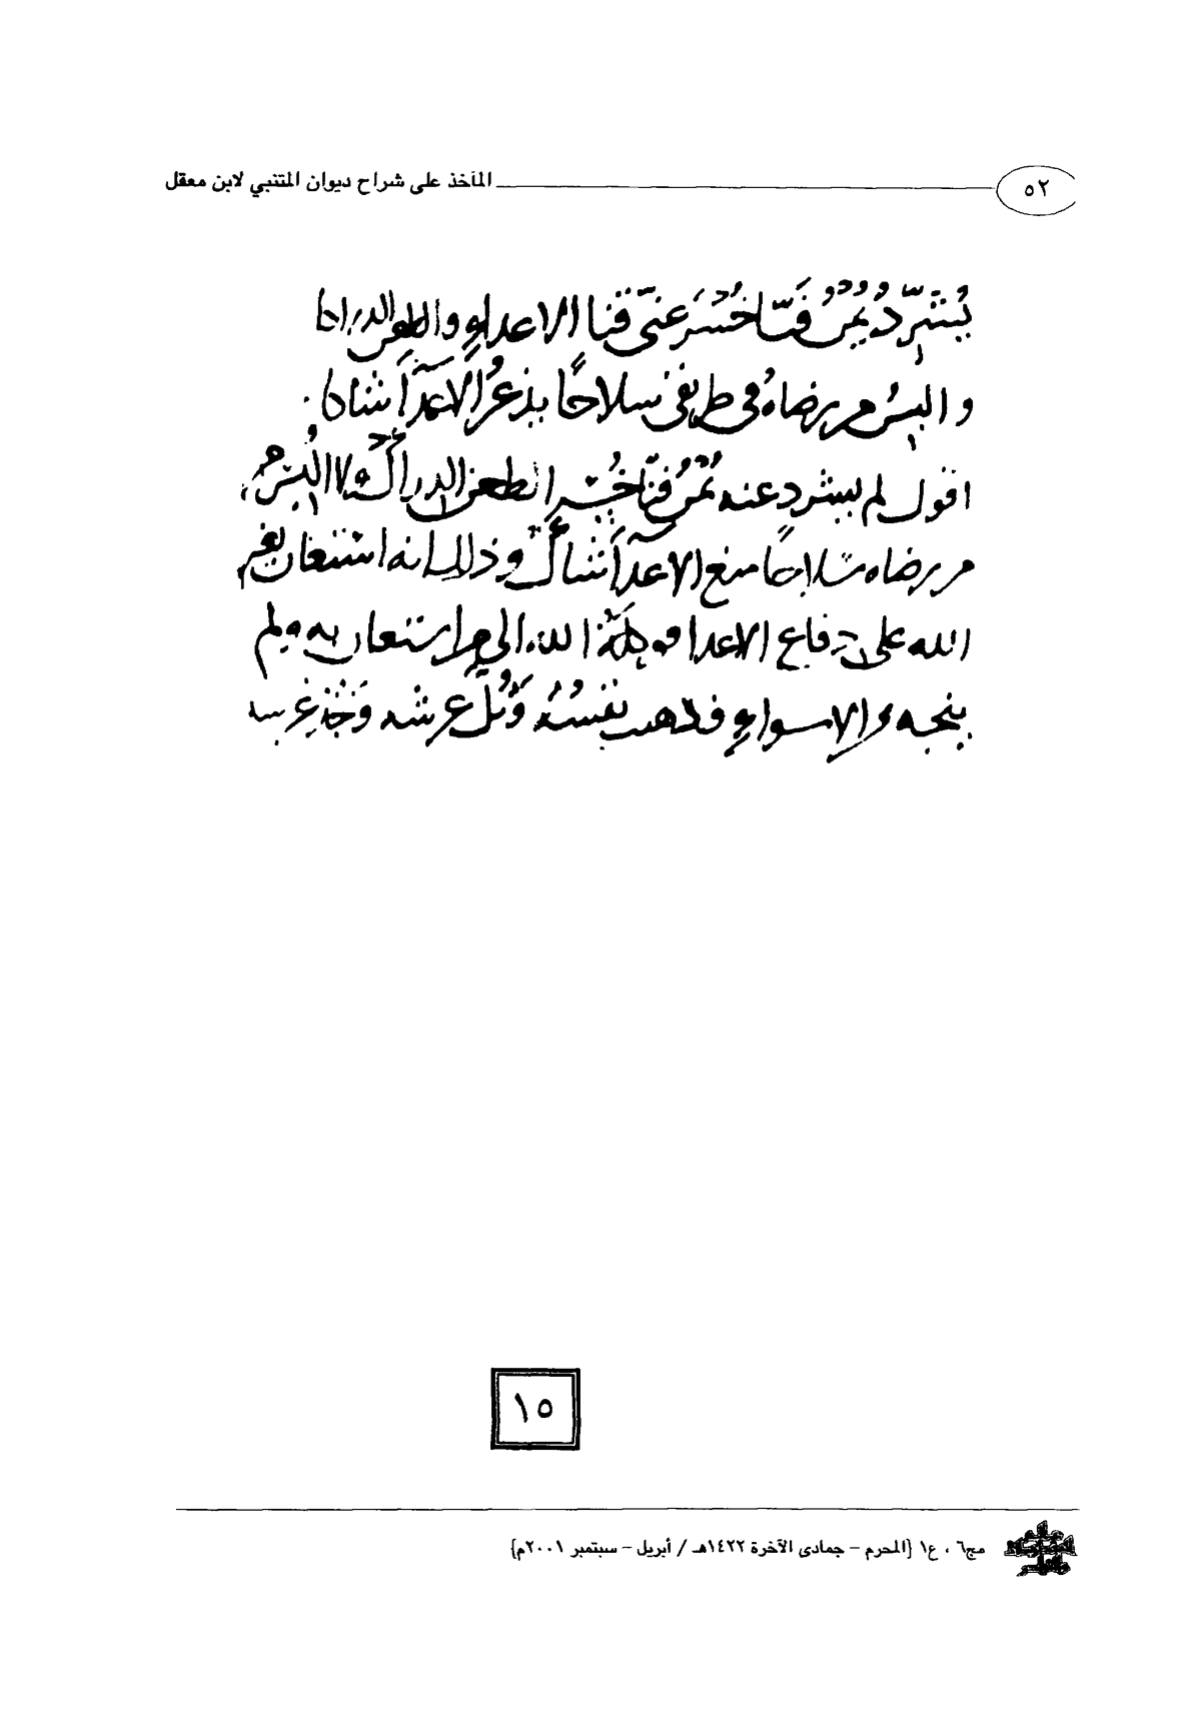 ٥٢
المآخذ على شراح ديوان المتنبي لابن معقل
يُشَرِّدُ يُمْنُ فَنّا خُسْرَ عَنّي قنا الاعداءِ والطعن الدراكا
والبسُ من رضاهُ في طريقي سلاحًا يذعرُ الاعدآءَ شاكا
اقول لم يشرد عنه يُمْنُ فنّا خُسْر الطعن الدراكَ ولا البسُ من
من رضاه سلاحًا منع الاعدآءَ شاكٍ وذلك انه استعان بغير
الله على دفاع الاعدا فوكلهُ الله الى من استعان به ولم
ينجه من الاسواءِ فذهب نفسُهُ وَثُلَّ عرشه وَجُذَّ غرسه
١٥
مج٦ ، ع١ {المحرم – جمادى الآخرة ١٤٢٢هـ / أبريل – سبتمبر ٢٠٠١م}